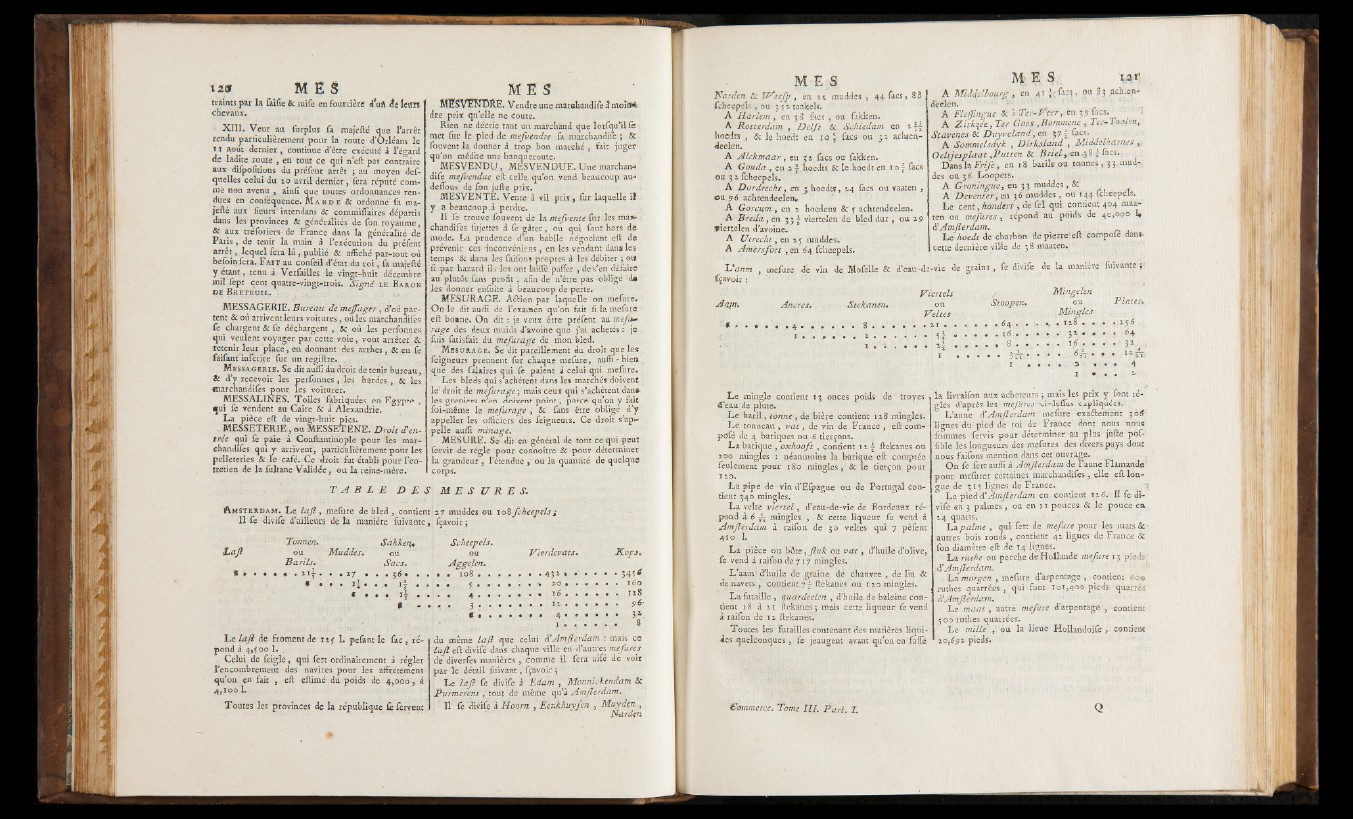 120 MES MES
traints par la saisie & mise en fourrière d'un de leurs
chevaux.
XIII. Veut au surplus sa majesté que l'arrêt
rendu particulièrement pour la route d'Orléans le
11 août dernier, continue d'être exécuté à l'égard
de ladite route, en tout ce qui n'est pas contraire
aux dispositions du présent arrêt; au moyen des-
quelles celui du 20 avril dernier, sera réputé com-
me non avenu, ainsi que toutes ordonnances ren-
dues en conséquence. MANDE & ordonne sa ma-
jesté aux sieurs intendans & commissaires départis
dans les provinces & généralités de son royaume,
& aux trésoriers de France dans la généralité de
Paris, de tenir la main à l'exécution du présent
arrêt, lequel sera lû, publié & affiché par-tout où
besoin sera. FAIT au conseil d'état du roi, sa majesté
y étant, tenu à Versailles le vingt-huit décembre
mil sept cent quatre-vingt-trois. Signé LE BARON
DE BRETEUIL.
MESSAGERIE. Bureau de messager, d'où par-
tent & où arrivent leurs voitures, où les marchandises
se chargent & se déchargent, & où les personnes
qui veulent voyager par cette voie, vont arrêter &
retenir leur place, en donnant des arrhes, & en se
faisant inscrire sur un registre.
MESSAGERIE. Se dit aussi du droit de tenir bureau,
& d'y recevoir les personnes, les hardes, & les
marchandises pour les voiturer.
MESSALINES. Toiles fabriquées en Egypte,
qui se vendent au Caire & à Alexandrie.
La pièce est de vingt-huit pics.
MESSETERIE, ou MESSETENE. Droit d'en-
trée qui se paie à Constantinople pour les mar-
chandises qui y arrivent, particulièrement pour les
pelleteries & le café. Ce droit fut établi pour l'en-
tretien de la sultane Validée, ou la reine-mère.
MESVENDRE. Vendre une marchandise à moin-
dre prix qu'elle ne coute.
Rien ne décrie tant un marchand que lorsqu'il se
met sur le pied de mesvendre sa marchandise; &
souvent la donner à trop bon marché, fait juger
qu'on médite une banqueroute.
MESVENDU, MESVENDUE. Une marchan-
dise mesvendue est celle qu'on vend beaucoup au-
dessous de son juste prix.
MESVENTE. Vente à vil prix, sur laquelle il
y a beaucoup à perdre.
Il se trouve souvent de la mesvente sur les mar-
chandises sujettes à se gâter, ou qui sont hors de
mode. La prudence d'un habile négociant est de
prévenir ces inconvéniens, en les vendant dans les
temps & dans les saisons propres à les débiter; ou
si par hazard ils les ont laissé passer, de s'en défaire
au plutôt sans profit, afin de n'être pas obligé de
les donner ensuite à beaucoup de perte.
MESURAGE. Action par laquelle on mesure.
On le dit aussi de l'examen qu'on fait si la mesure
est bonne. On dit: je veux être présent au mesu-
rage des deux muids d'avoine que j'ai achetés: je
suis satisfait du mesurage de mon bled.
MESURAGE. Se dit pareillement du droit que les
seigneurs prennent sur chaque mesure, aussi-bien
que des salaires qui se paient à celui qui mesure.
Les bleds qui s'achètent dans les marchés doivent
le droit de mesurage; mais ceux qui s'achètent dans
les greniers n'en doivent point, parce qu'on y fait
soi-même le mesurage, & sans être obligé d'y
appeller les officiers des seigneurs. Ce droit s'ap-
pelle aussi minage.
MESURE. Se dit en général de tout ce qui peut
servir de règle pour connoître & pour déterminer
la grandeur, l'étendue, ou la quantité de quelque
corps.
TABLE DES MESURES.
AMSTERDAM. Le last, mesure de bled, contient 27 muddes ou 108 scheepels;
Il se divise d'ailleurs de la manière suivante, sçavoir;
Tonnen. Sakken. Scheepels.
Last ou Muddes. ou ou Vierdevats. Kops.
Barils. Sacs. Aggelen.
1 . . . . . 21 1/3 . . . 27 . . . 36 . . . 108 . . . . . . 432 . . . . . . 3456
1 . . . 1 1/4 . . . 1 2/3 . . . 5 . . . . . . . 20 . . . . . . 160
1 . . . 1 1/3 . . . 4 . . . . . . . 16 . . . . . . 128
1 . . . . 3 . . . . . . . 12 . . . . . . 96
1 . . . . . . . 4 . . . . . . 32
1 . . . . . . 8
Le last de froment de 125 l. pesant le sac, ré-
pond à 4,500 l.
Celui de seigle, qui sert ordinairement à régler
l'encombrement des navires pour les affrétemens
qu'on en fait, est estimé du poids de 4,000, à
4,100 l.
Toutes les provinces de la république se servent
du même last que celui d'Amsterdam: mais ce
last est divisé dans chaque ville en d'autres mesures
de diverses manières, comme il sera aisé de voir
par le détail suivant, sçavoir;
Le last se divise à Edam, Monnikendam &
Purmerent, tout de même qu'à Amsterdam.
Il se divise à Hoorn, Eenkhuysen, Muyden,
Narden
MES MES 121
Narden & Weesp, en 22 muddes, 44 sacs, 88
scheepels, ou 352 taakels.
A Harlem, en 38 sacs, ou sakken.
A Rotterdam, Delft & Schiedam en
hoedts, & le hoedt en 10 2/3 sacs ou 32 achten-
deelen.
A Alckmaar, en 36 sacs ou sakken.
A Gouda, en hoedts & le hoedt en 10 2/3 sacs
ou 32 scheepels.
A Dordrecht, en 3 hoedts, 24 sacs ou vaaten,
ou 96 achtendeelen.
A Gorcum, en 2 hoedens & 5 achtendeelen.
A Breda, en 33 1/2 viertelen de bled dur, ou 29
viertelen d'avoine.
A Utrecht, en 25 muddes.
A Amersfort, en 64 scheepels.
A Middelbourg, en 41 1/2 sacs, ou 83 achten-
deelen.
A Flessingue & à Ter-Veer, en 39 sacs.
A Zirkzée, Ter Goes, Bommene, Ter-Toolen,
Stavenes & Duyveland, en 37 1/2 sacs.
A Sommelsdyk, Dirksland, Middelharnes,
Oeltjesplaat, Putten & Briel, en 38 1/2 sacs.
Dans la Frise, en 18 barils ou tonnes, 33 mud-
des ou 36 Loopers.
A Groningue, en 33 muddes, &
A Deventer, en 36 muddes, ou 144 scheepels.
Le cent, honders, de sel qui contient 404 maa-
ten ou mesures, répond au poids de 40,000 l.
d'Amsterdam.
Le hoedt de charbon de pierre est composé dans
cette dernière ville de 38 maaten.
L'anm, mesure de vin de Moselle & d'eau-de-vie de grains, se divise de la manière suivante;
sçavoir:
Viertels Mingelen
Aam. Ancres. Steekanen. ou Stoopen. ou Pintes.
Veltes Mingles
1 . . . . . 4 . . . . . 8 . . . . . 21 . . . . . 64 . . . . . 128 . . . . 256
1 . . . . . 2 . . . . . 5 1/4 . . . . . 16 . . . . . 32 . . . . 64
1 . . . . . . . . . . 8 . . . . . 16 . . . . 32
1 . . . . . 3 1/21 . . . .
1 . . . . 2 . . . 4
1 . . . 2
Le mingle contient 13 onces poids de troyes,
d'eau de pluie.
Le baril, tonne, de bière contient 128 mingles.
Le tonneau, vat, de vin de France, est com-
posé de 4 bariques ou 6 tierçons.
La barique, oxhooft, contient 12 1/2 stekanes ou
200 mingles: néanmoins la barique est comptée
seulement pour 180 mingles, & le tierçon pour
120.
La pipe de vin d'Espagne ou de Portugal con-
tient 340 mingles.
La velte viertel, d'eau-de-vie de Bordeaux ré-
pond à mingles, & cette liqueur se vend à
Amsterdam à raison de 30 veltes qui pèsent
410 l.
La pièce ou bôte, stuk ou vat, d'huile d'olive,
se vend à raison de 717 mingles.
L'aam d'huile de graine de chanvre, de lin &
de navets, contient 7 1/2 stekanes ou 120 mingles.
La futaille, quardeelen, d'huile de baleine con-
tient 18 à 21 stekanes; mais cette liqueur se vend
à raison de 12 stekanes.
Toutes les futailles contenant des matières liqui-
des quelconques, se jeaugent avant qu'on en fasse
la livraison aux acheteurs; mais les prix y sont ré-
glés d'après les mesures ci-dessus expliquées.
L'aune d'Amsterdam mesure exactement 306
lignes du pied de roi de France dont nous nous
sommes servis pour déterminer au plus juste pos-
sible les longueurs des mesures des divers pays dont
nous faisons mention dans cet ouvrage.
On se sert aussi à Amsterdam de l'aune Flamande
pour mesurer certaines marchandises, elle est lon-
gue de 315 lignes de France.
Le pied d'Amsterdam en contient 126. Il se di-
vise en 3 palmes, ou en 11 pouces & le pouce en
24 quarts.
La palme, qui sert de mesure pour les mats &
autres bois ronds, contient 42 lignes de France &
son diamètre est de 14 lignes.
La ruthe ou perche de Hollande mesure 13 pieds
d'Amsterdam.
La morgen, mesure d'arpentage, contient 600
ruthes quarrées, qui font 101,400 pieds quarrés
d'Amsterdam.
Le maat, autre mesure d'arpentage, contient
500 ruthes quarrées.
Le mille, ou la lieue Hollandoise, contient
20,692 pieds.
Commerce. Tome III. Part. I. Q